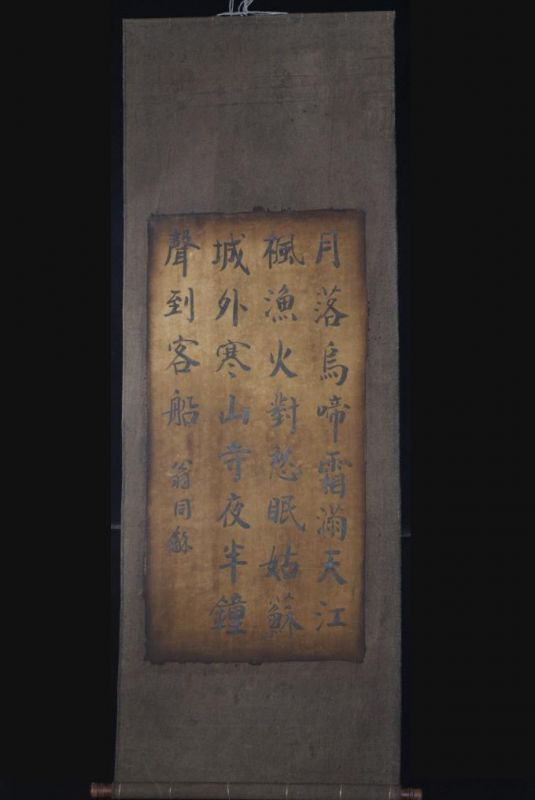 月落烏啼霜滿天江
楓漁火對愁眠姑蘇
城外寒山寺夜半鐘
聲到客船
翁同龢